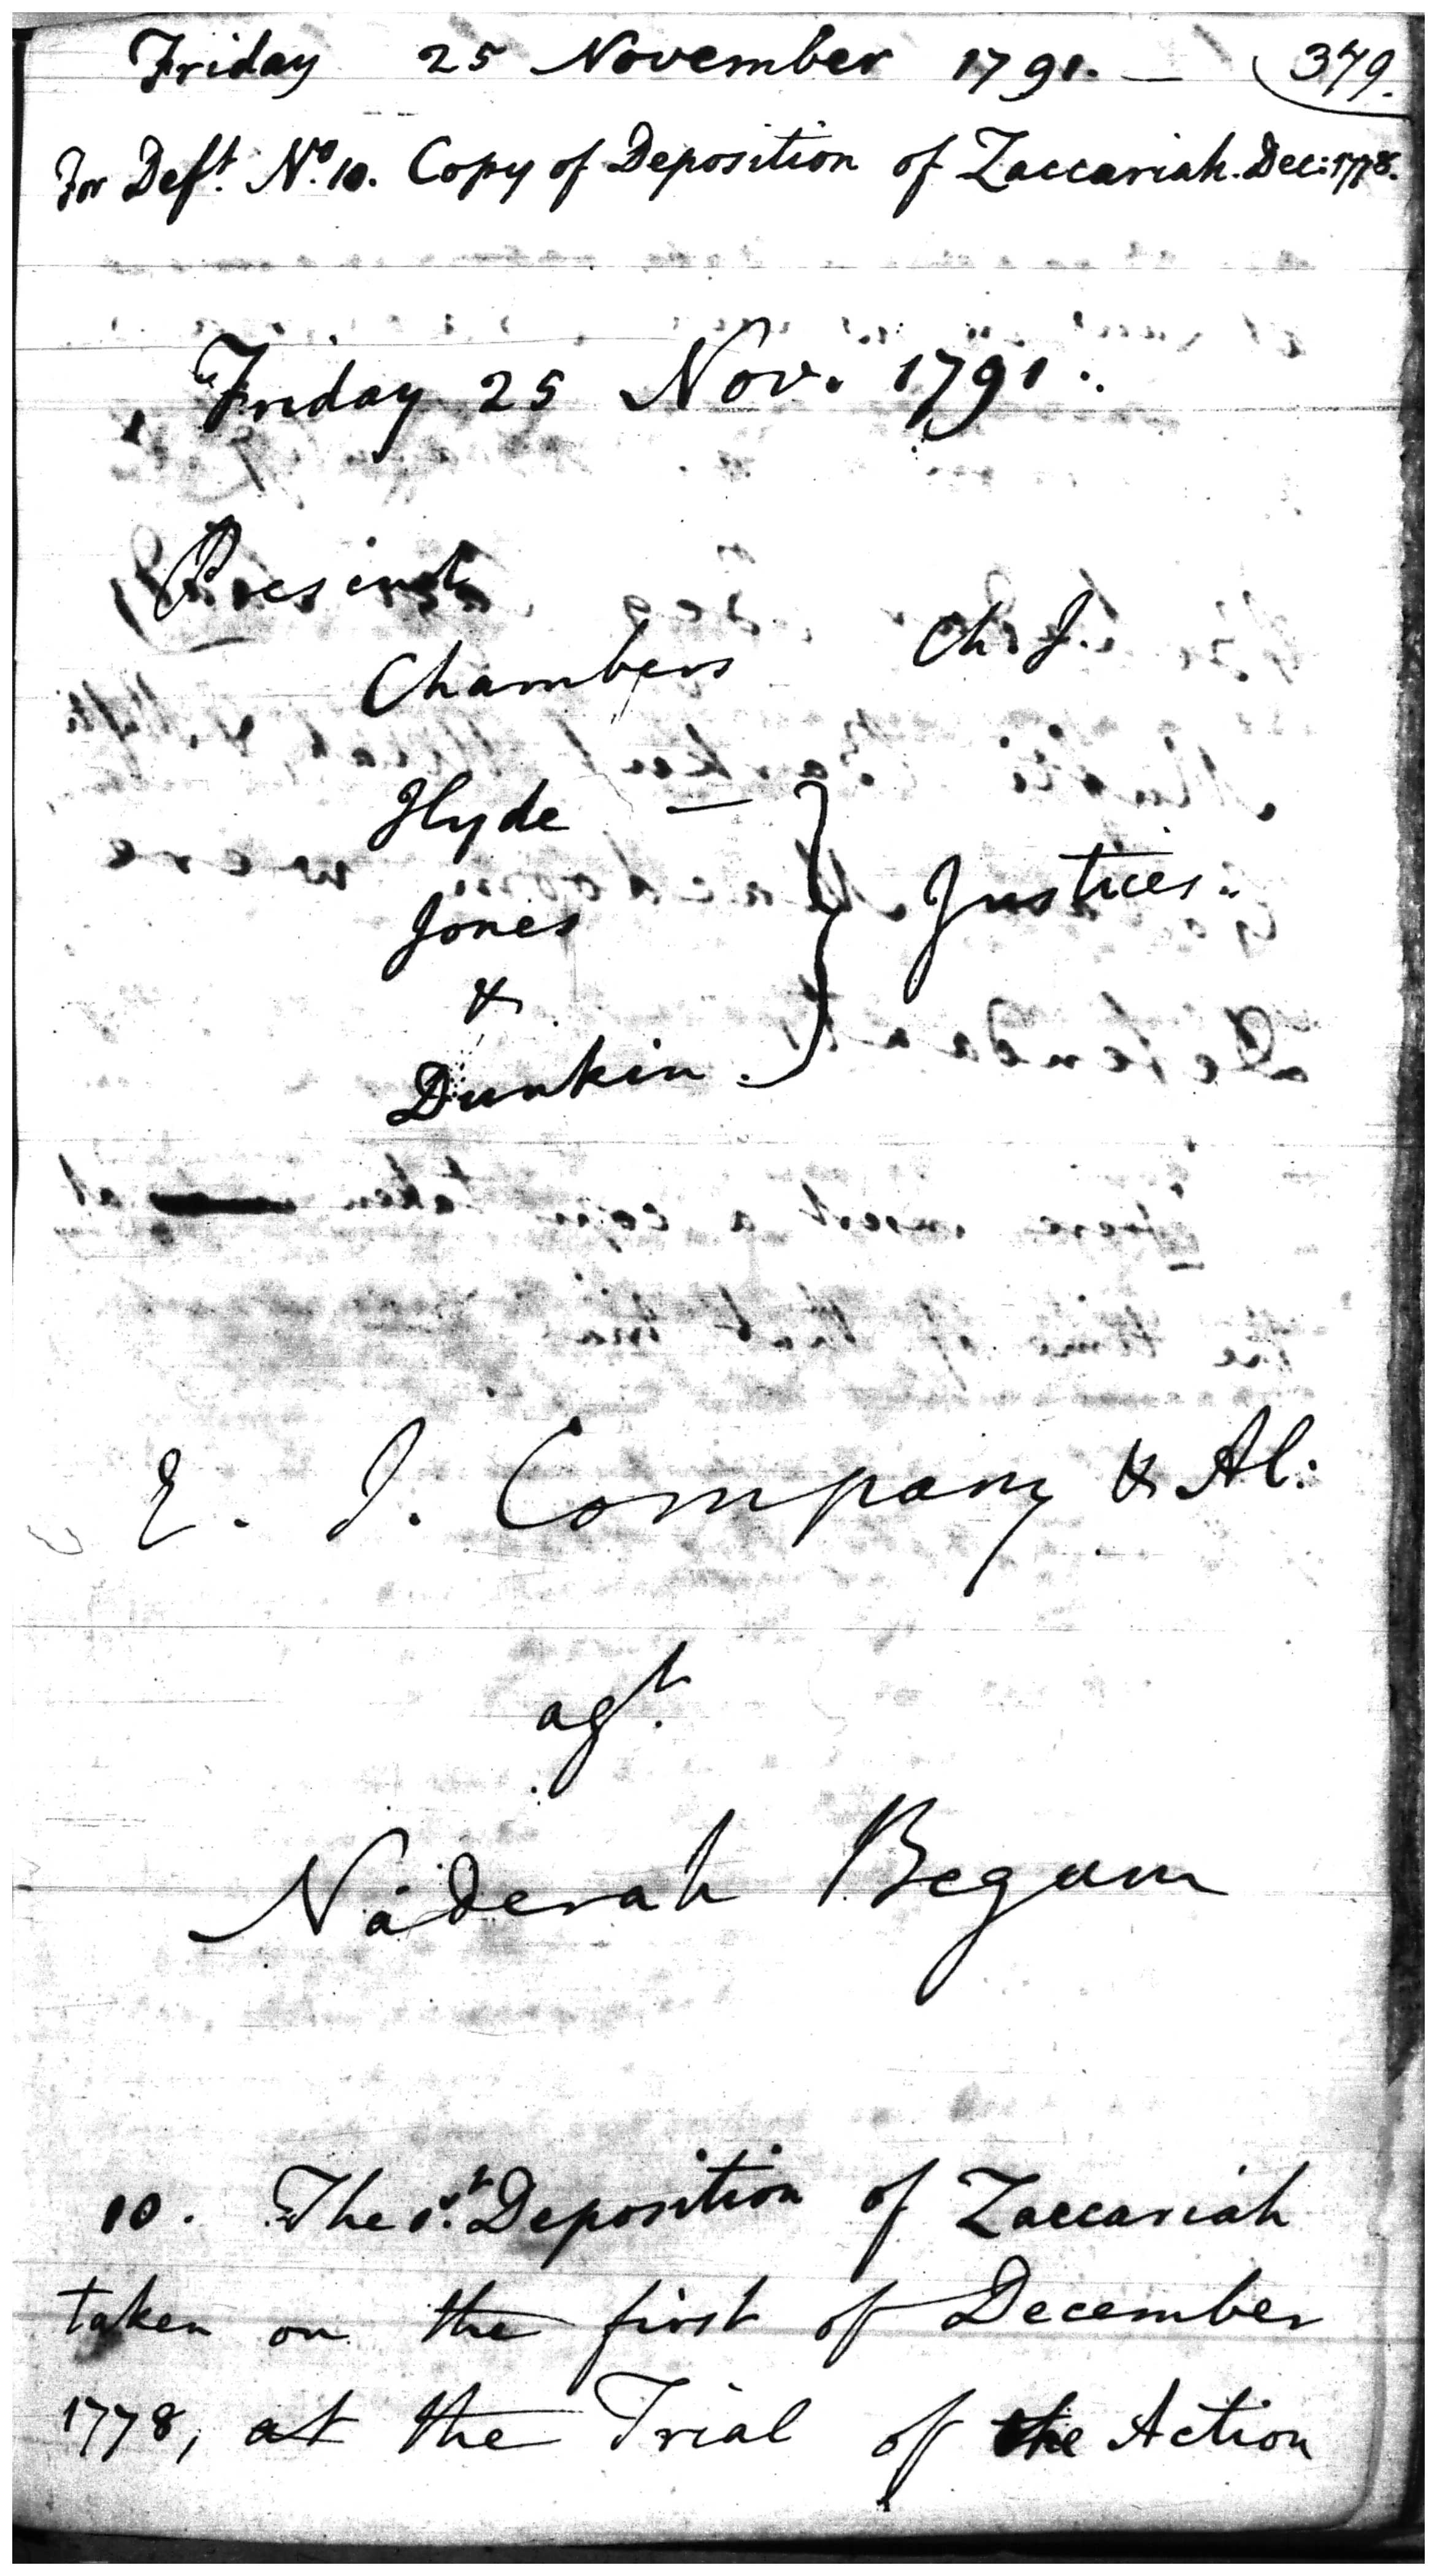 Friday 25 November 1791. — 379.
For Deft. No. 10. Copy of Deposition of Zaccariah. Dec: 1778.
Friday 25 Nov. 1791.
Present
Chambers Ch. J.
Hyde —
Jones
&
Dunkin.
Justices.
E. I. Company & Al:
agt.
Náderah Begum
10. The 1st. Deposition of Zaccariah
taken on the first of December
1778, at the Trial of the Action